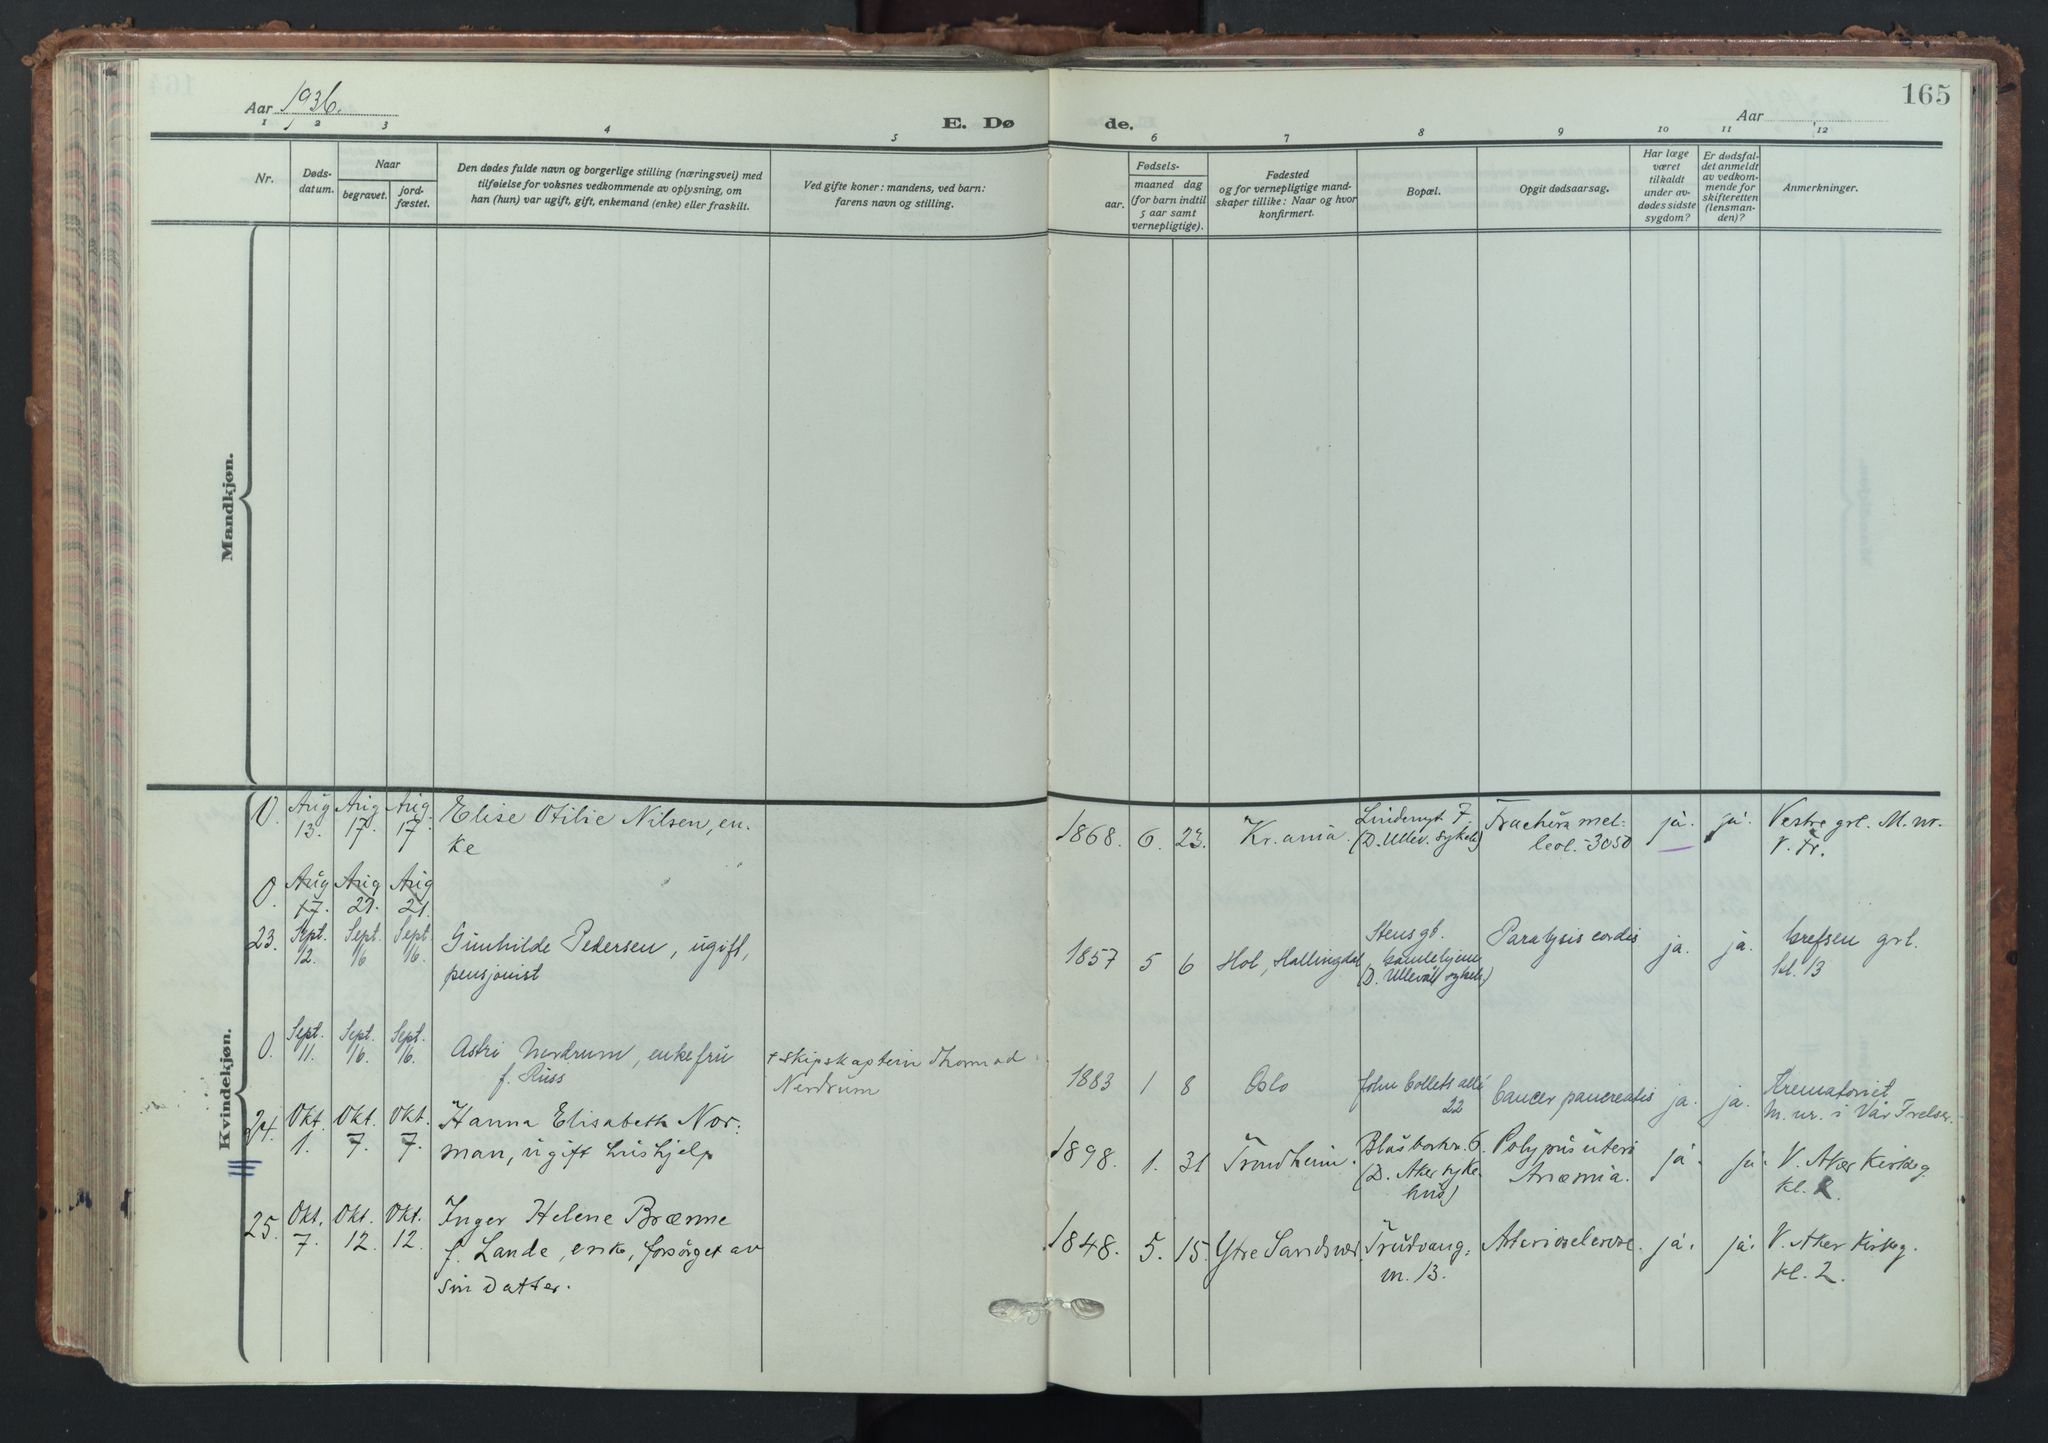 165
Aar 1936.
E. Dø de.
Aar
1 2 3 4 5 6 7 8 9 10 11 12
Nr.
Døds-
datum.
Naar
begravet.
jord-
fæstet.
Den dødes fulde navn og borgerlige stilling (næringsvei) med
tilføielse for voksnes vedkommende av oplysning, om
han (hun) var ugift, gift, enkemand (enke) eller fraskilt.
Ved gifte koner: mandens, ved barn:
farens navn og stilling.
Fødsels-
aar.
maaned dag
(for barn indtil
5 aar samt
vernepligtige).
Fødested
og for vernepligtige mand-
skaper tillike: Naar og hvor
konfirmert.
Bopæl.
Opgit dødsaarsag.
Har læge
været
tilkaldt
under av-
dødes sidste
sygdom?
Er dødsfal-
det anmeldt
av vedkom-
mende for
skifteretten
(lensman-
den)?
Anmerkninger.
Mandkjøn.
Kvindekjøn.
0. Aug 13. Aug 17. Aug. 17.
Elise Otilie Nilsen, en-
ke
1868. 6. 23. Kr.ania.
Linderngt 7.
(D. Ullev. sykeh)
ja. ja.
Vestre grl. M. nr.
V. Fr.
0. Aug 17. Aug 21. Aug 21.
23. Sept. 12. Sept. 16 Sept 16.
Gunhilde Pedersen, ugift,
pensjonist
1857 5 6 Hol, Hallingdal
Stensgt.
Gamlehjem
(D. Ullevål sykeh.)
Paralysis cordis
ja. ja.
Grefsen grl.
kl. 13
0. Sept. 11. Sept. 16. Sept. 16.
Astri Nerdrum, enkefru
f. Russ
+ skipskaptein Thormod
Nerdrum
1883 1 8 Oslo
John Collets allé
22
Cancer pancreatis
ja. ja.
Krematoriet
M. nr. i Vår Frelser.
24. Okt. 1. Okt. 7. Okt. 7.
Hanna Elisabeth Nor-
man, ugift hushjelp
1898. 1. 31 Trondheim.
6.
(D. Aker syke-
hus)
Polypus uteri
Anæmia.
ja. ja.
V. Aker Kirkeg.
kl. 2.
25. Okt. 7. Okt. 12. Okt. 12.
Inger Helene Brænne
f. Lande, enke, forsørget av
sin datter.
1848. 5. 15. Ytre Sandsvær.
Trudvang.
m. 13.
Arteriosclerose.
ja. ja.
V. Aker Kirkeg.
kl. 2.